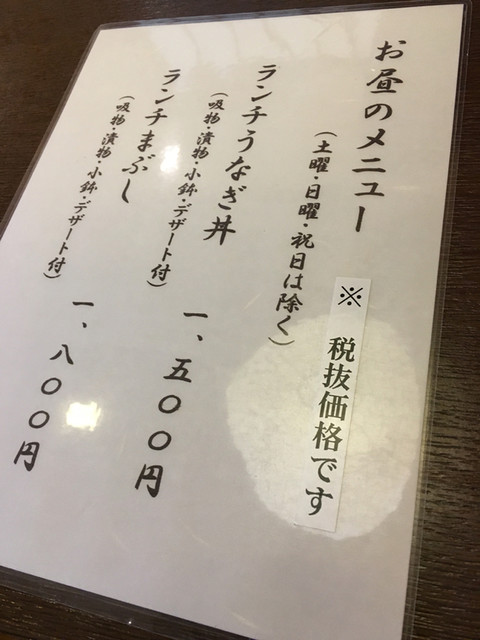 お昼のメニュー
(土曜・日曜・祝日は除く)
※ 税抜価格です
ランチうなぎ丼
(吸物・漬物・小鉢・デザート付)
一、五〇〇円
ランチまぶし
(吸物・漬物・小鉢・デザート付)
一、八〇〇円